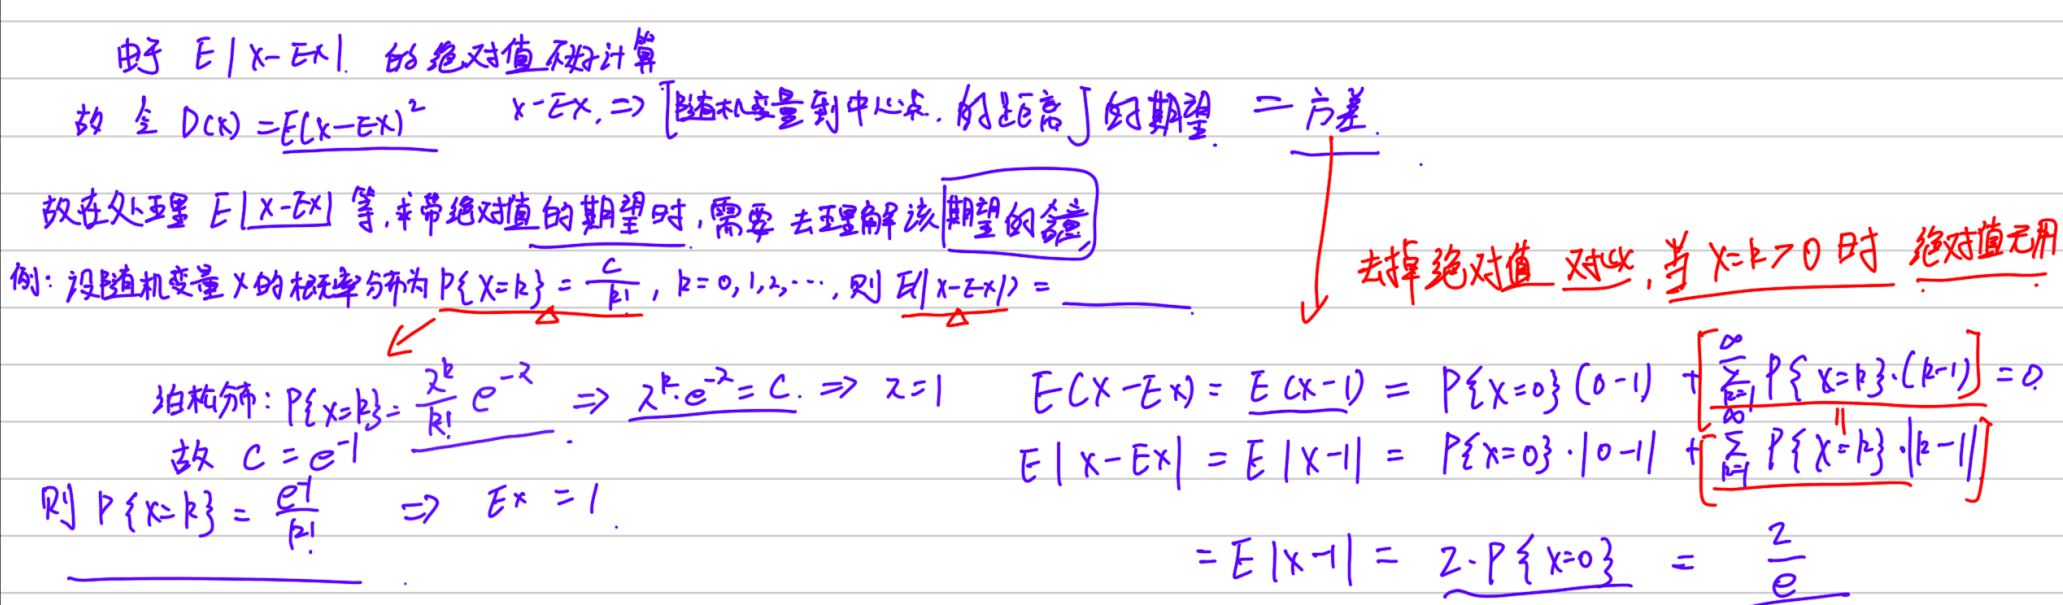 由于 E|X-EX|. 的绝对值不好计算
故 令 D(X) = E(X-EX)² X-EX, ⇒ [随机变量到中心点, 的距离] 的期望 = 方差.
故在处理 E|X-EX| 等, 求带绝对值的期望时, 需要 去理解该 期望的含意
去掉绝对值 对比, 当 X=k>0 时 绝对值无用
例: 设随机变量 X 的概率分布为 P{X=k} = C/k!, k=0,1,2,…, 则 E(|X-EX|) = ____
泊松分布: P{X=k} = λ^k/k! e^-λ ⇒ λ^k·e^-λ = C. ⇒ λ=1
故 C = e^-1
则 P{X=k} = e^-1/k! ⇒ EX = 1.
E(X-EX) = E(X-1) = P{X=0}(0-1) + [∑_{k=1}^∞ P{X=k}·(k-1)] = 0.
E|X-EX| = E|X-1| = P{X=0}·|0-1| + [∑_{k=1}^∞ P{X=k}·|k-1|]
= E|X-1| = 2·P{X=0} = 2/e